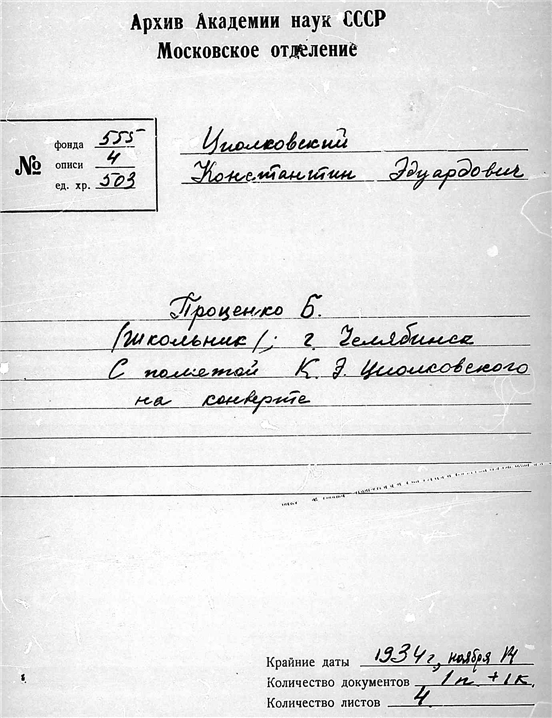 Архив Академии наук СССР
Московское отделение
№
фонда 555
описи 4
ед. хр. 503
Циолковский
Константин Эдуардович
Проценко Б.
(школьник); г. Челябинск
С пометой К. Э. Циолковского
на конверте
Крайние даты 1934 г, ноября 14
Количество документов 1п + 1к
Количество листов 4